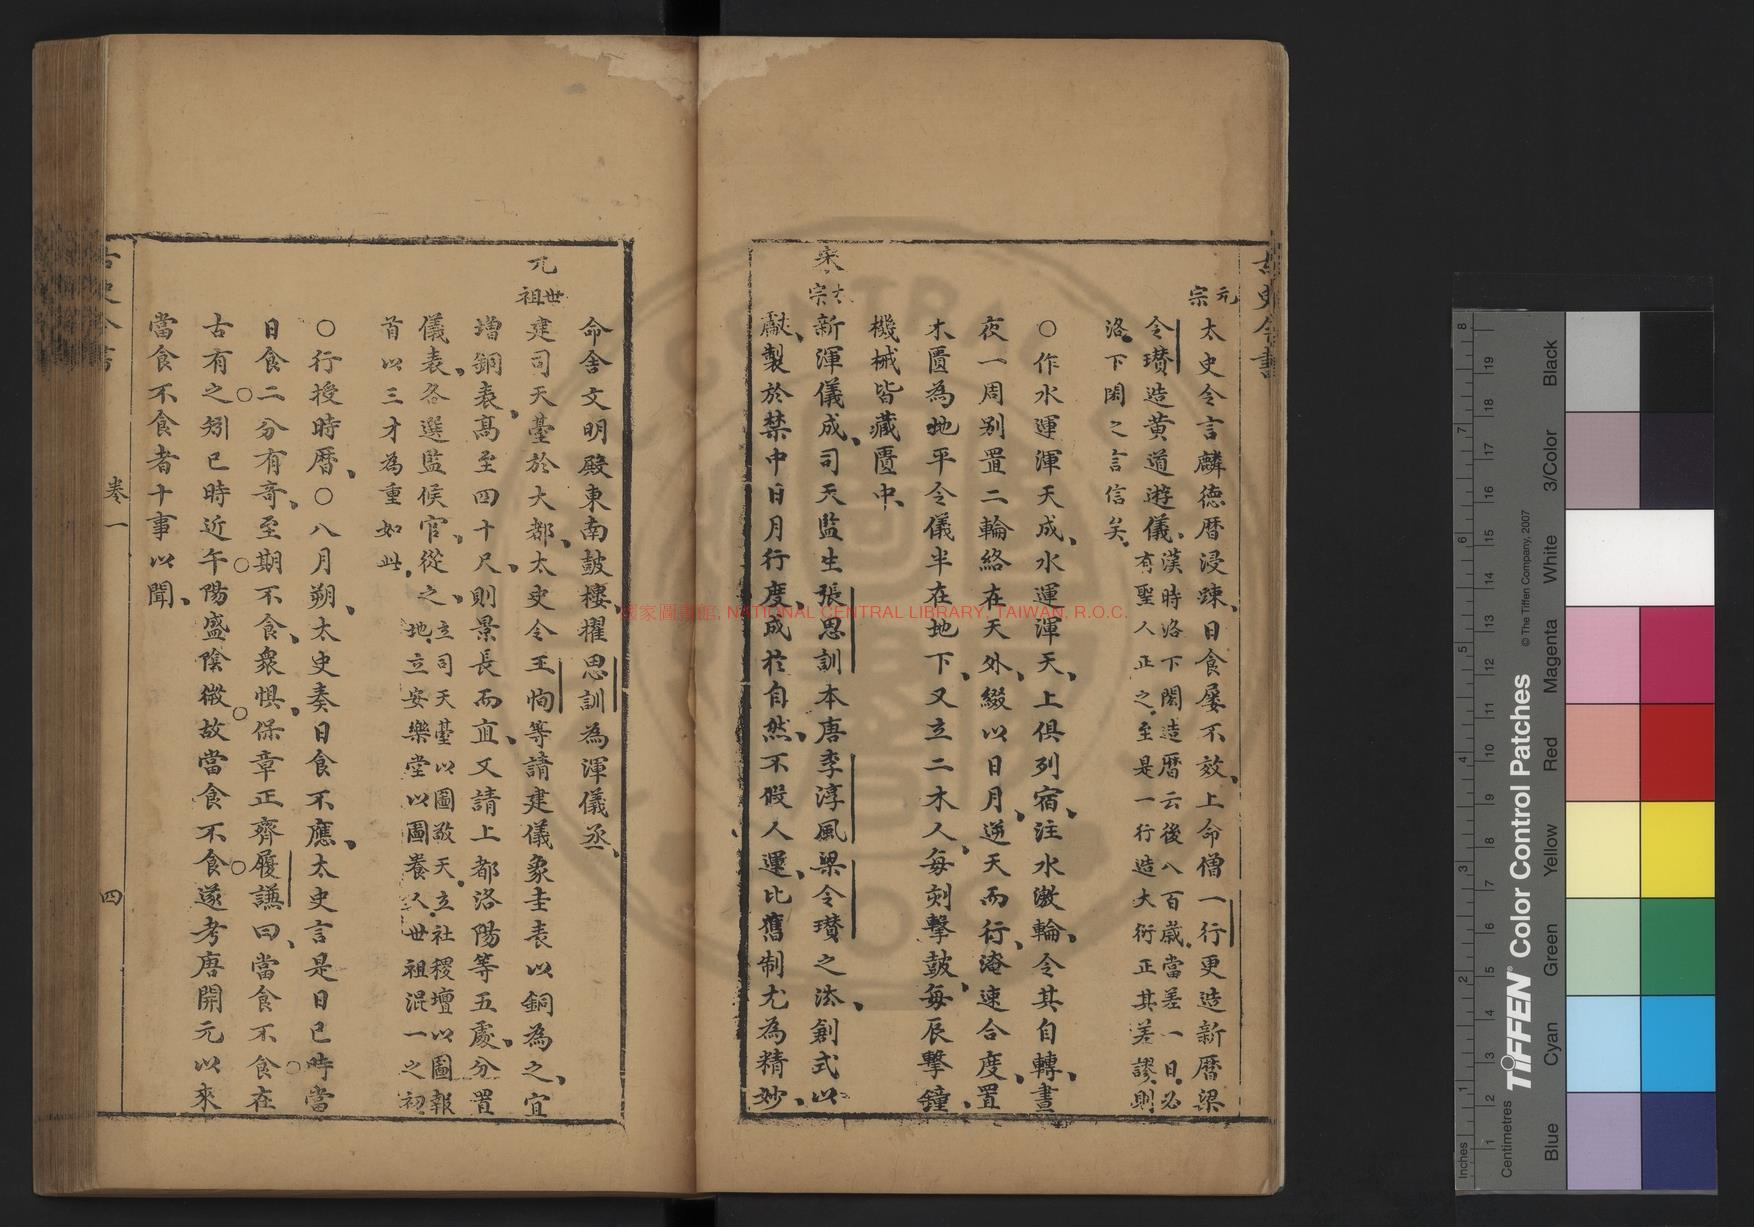 元宗
太史令言麟德曆浸疎日食屢不效上命僧一行更造新曆梁
令瓚造黄道遊儀漢時洛下閎造曆云後八百歲當差一日必
有聖人正之至是一行造大衍正其差謬則
洛下閎之言信矣
○作水運渾天成水運渾天上俱列宿注水激輪令其自轉晝
夜一周别置二輪絡在天外綴以日月逆天而行淹速合度置
木匱為地平令儀半在地下又立二木人每刻擊鼓每辰擊鐘
機械皆藏匱中
宋太宗
新渾儀成司天監生張思訓本唐李淳風梁令瓚之法創式以
獻製於禁中日月行度成於自然不假人運比舊制尤為精妙
命舍文明殿東南鼓樓擢思訓為渾儀丞
元世祖
建司天臺於大都太史令王恂等請建儀象圭表以銅為之宜
增銅表高至四十尺則景長而直又請上都洛陽等五處分置
儀表各選監候官從之立司天臺以圖敬天立社稷壇以圖報
地立安樂堂以圖養人世祖混一之初
首以三才為重如此
○行授時曆○八月朔太史奏日食不應太史言是日巳時當
日食二分有奇至期不食衆惧保章正齊履謙曰當食不食在
古有之矧巳時近午陽盛陰微故當食不食遂考唐開元以來
當食不食者十事以聞
卷一
四
國家圖書館, NATIONAL CENTRAL LIBRARY, TAIWAN, R.O.C.
TIFFEN® Color Control Patches
© The Tiffen Company, 2007
Inches
Centimetres
Blue
Cyan
Green
Yellow
Red
Magenta
White
3/Color
Black